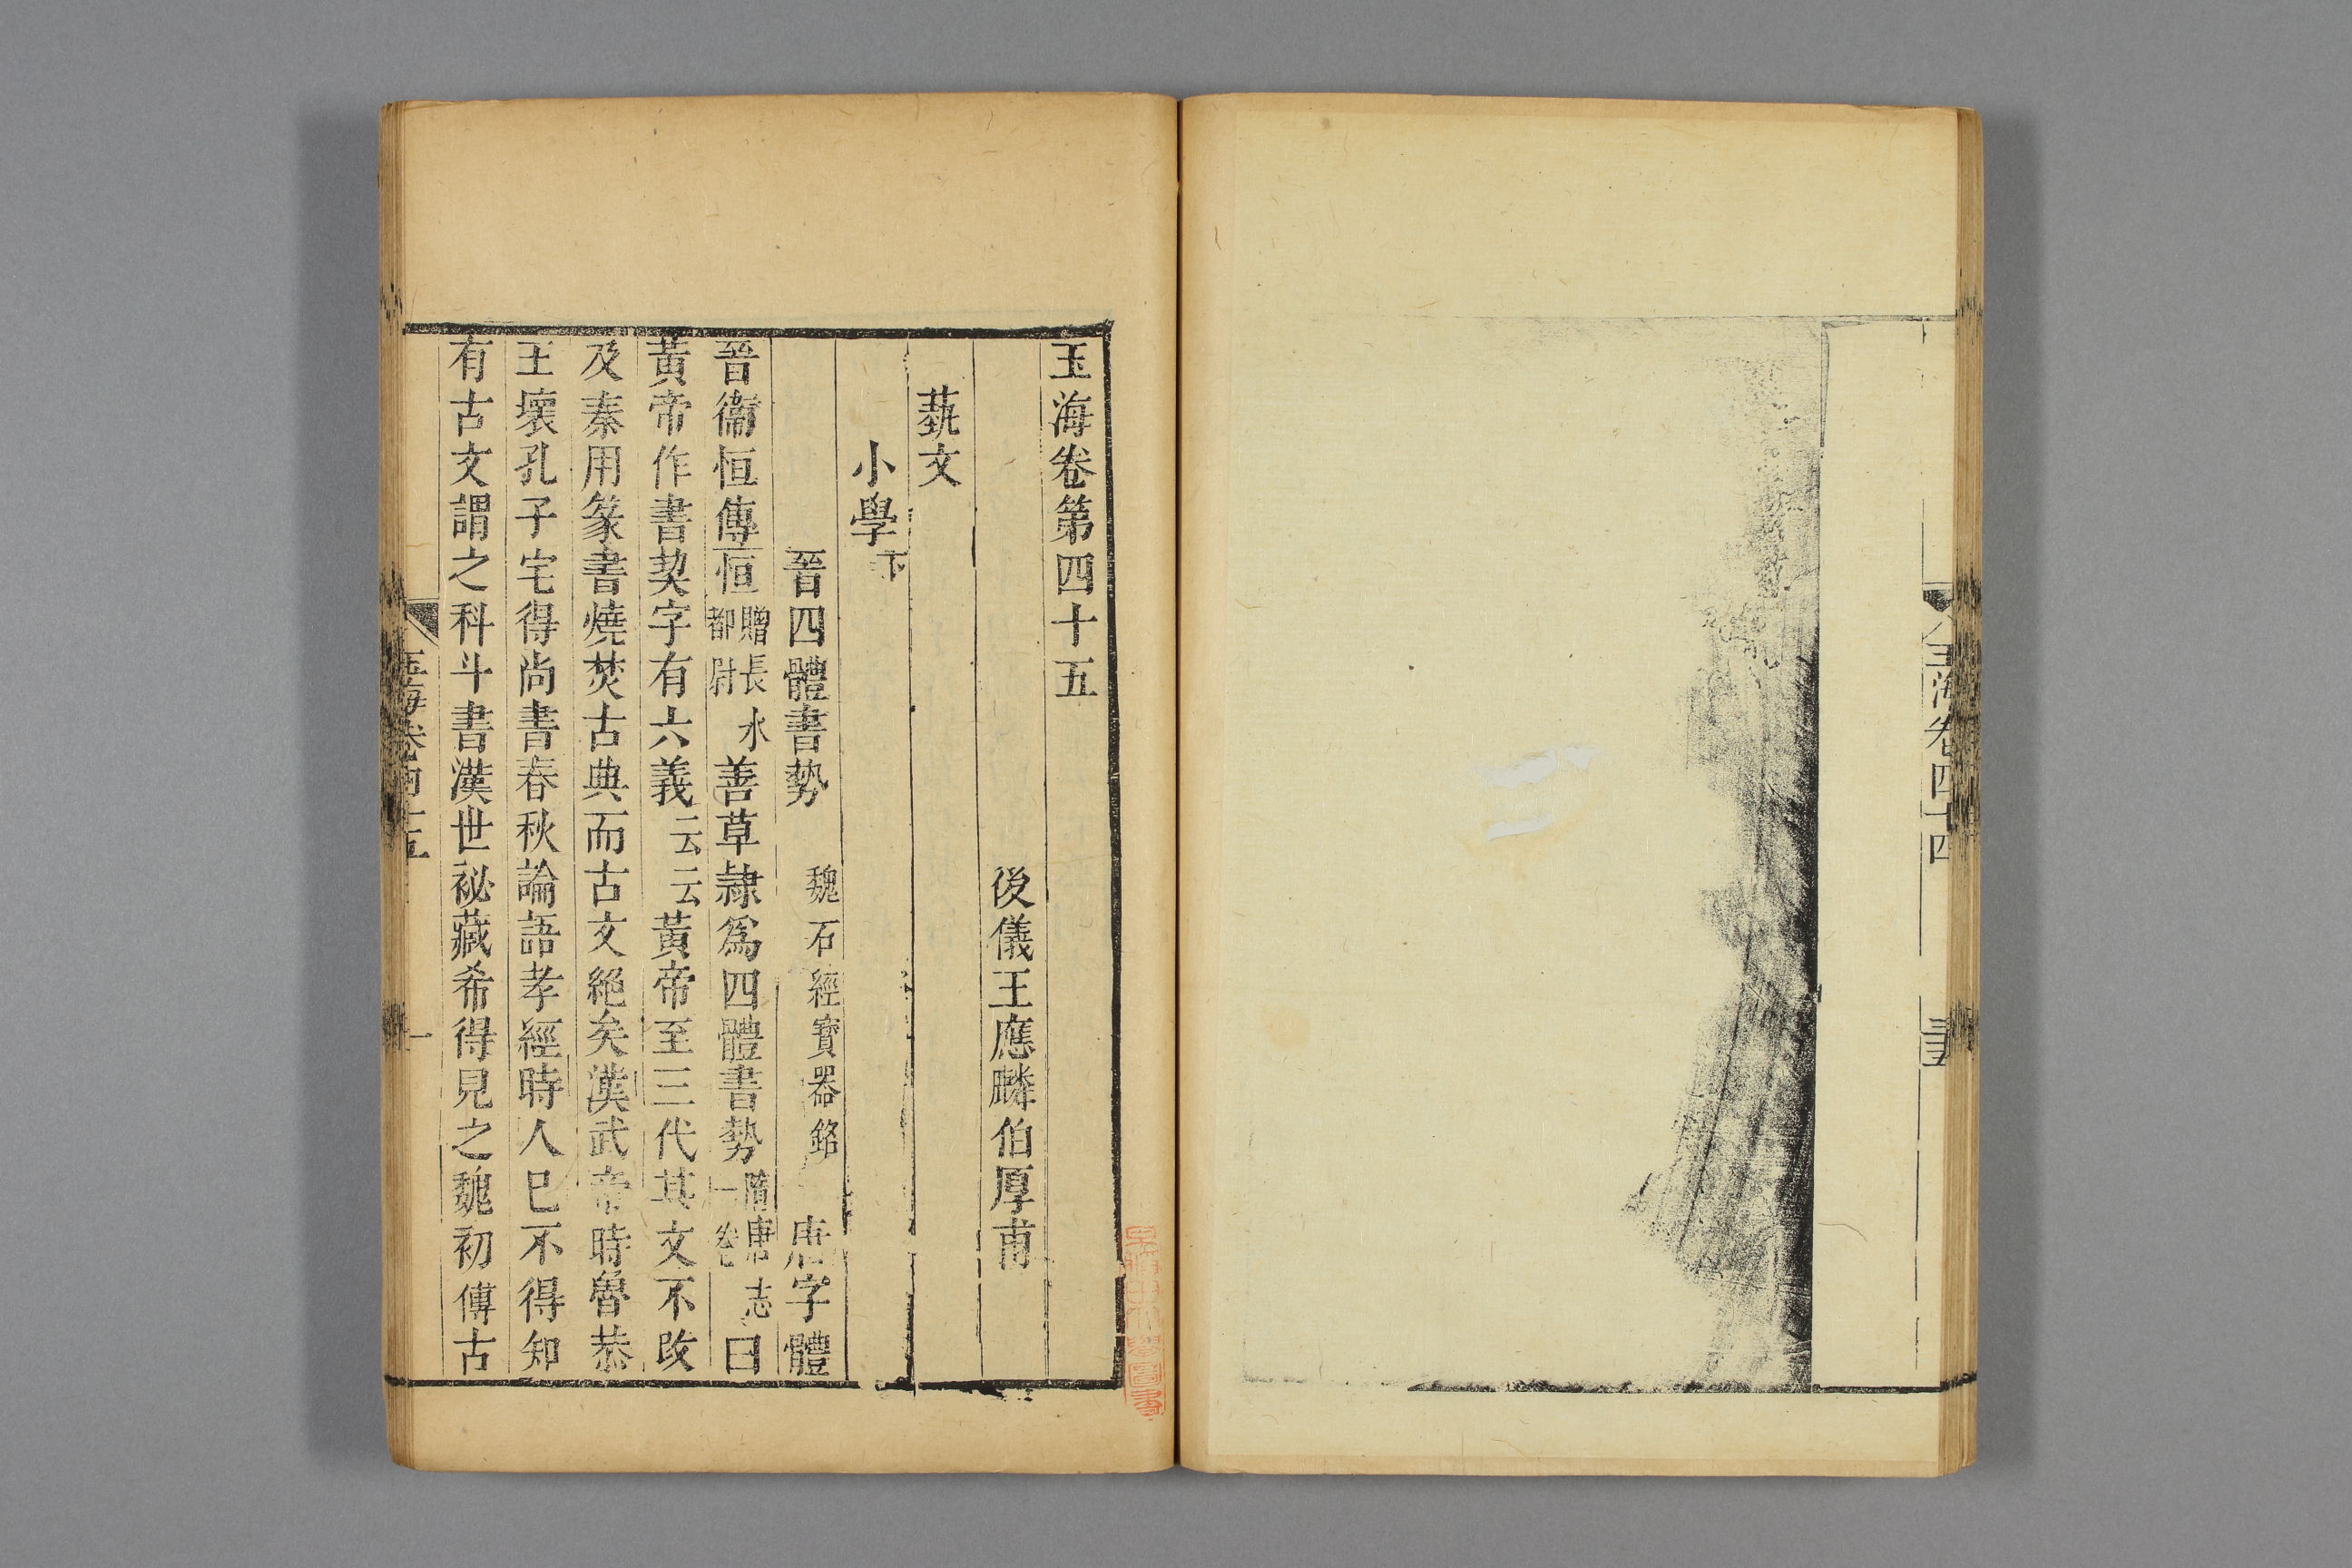 玉海卷四十四
三十五
玉海卷第四十五
後儀王應麟伯厚甫
藝文
小學下
晉四體書勢 魏石經寶器銘 唐字體
晉衞恒傳恒贈長水都尉善草隷爲四體書勢隋唐志一卷曰
黃帝作書契字有六義云云黃帝至三代其文不改
及秦用篆書燒焚古典而古文絕矣漢武帝時魯恭
王壞孔子宅得尚書春秋論語孝經時人巳不得知
有古文謂之科斗書漢世祕藏希得見之魏初傳古
玉海卷四十五
一